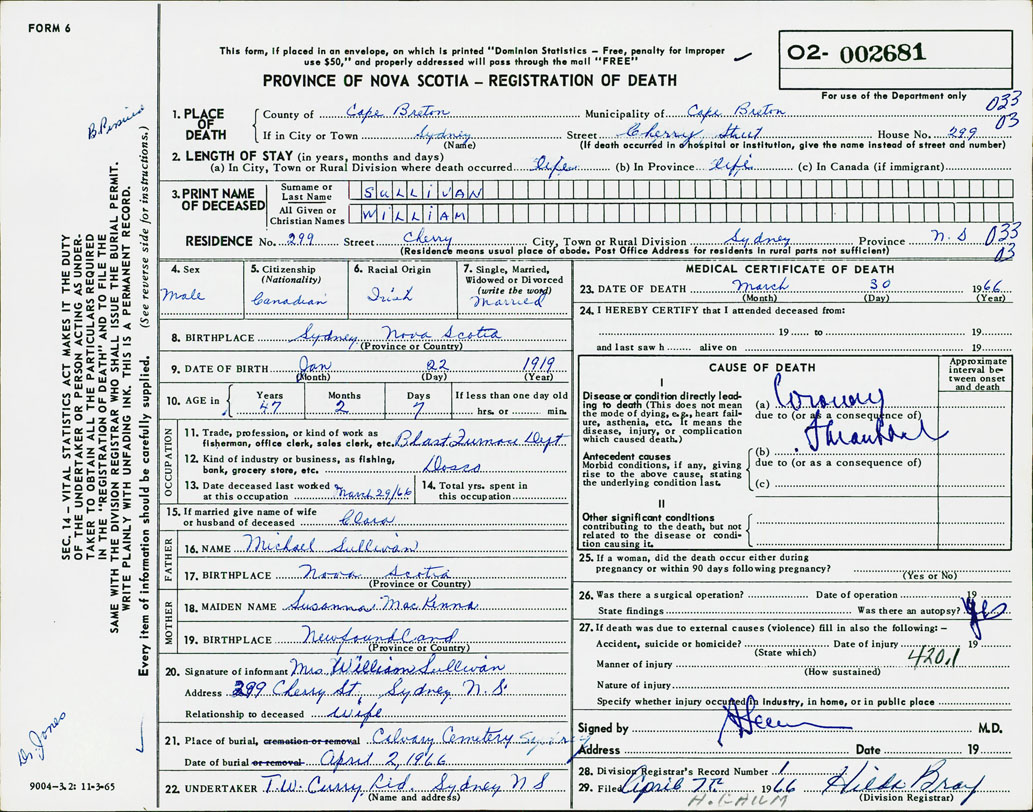 FORM 6
This form, if placed in an envelope, on which is printed "Dominion Statistics – Free, penalty for improper
use $50," and properly addressed will pass through the mail "FREE"
PROVINCE OF NOVA SCOTIA – REGISTRATION OF DEATH
02- 002681
For use of the Department only
033
03
1. PLACE OF DEATH County of Cape Breton Municipality of Cape Breton
If in City or Town Sydney Street Cherry Street House No. 299
(Name) (If death occurred in a hospital or institution, give the name instead of street and number)
2. LENGTH OF STAY (in years, months and days)
(a) In City, Town or Rural Division where death occurred life (b) In Province life (c) In Canada (if immigrant)
3. PRINT NAME OF DECEASED
Surname or Last Name SULLIVAN
All Given or Christian Names WILLIAM
RESIDENCE No. 299 Street Cherry City, Town or Rural Division Sydney Province N.S 033
(Residence means usual place of abode. Post Office Address for residents in rural parts not sufficient) 03
4. Sex Male
5. Citizenship (Nationality) Canadian
6. Racial Origin Irish
7. Single, Married, Widowed or Divorced (write the word) Married
8. BIRTHPLACE Sydney Nova Scotia
(Province or Country)
9. DATE OF BIRTH Jan 22 1919
(Month) (Day) (Year)
10. AGE in Years 47 Months 2 Days 7 If less than one day old hrs. or min.
OCCUPATION
11. Trade, profession, or kind of work as
fisherman, office clerk, sales clerk, etc. Blast Furnace Dept
12. Kind of industry or business, as fishing,
bank, grocery store, etc. Dosco
13. Date deceased last worked at this occupation March 29/66
14. Total yrs. spent in this occupation
15. If married give name of wife
or husband of deceased Clara
FATHER
16. NAME Michael Sullivan
17. BIRTHPLACE Nova Scotia
(Province or Country)
MOTHER
18. MAIDEN NAME Susanna MacKenna
19. BIRTHPLACE Newfoundland
(Province or Country)
20. Signature of informant Mrs. William Sullivan
Address 299 Cherry St, Sydney N.S.
Relationship to deceased Wife
21. Place of burial, cremation or removal Calvary Cemetery Sydney
Date of burial or removal April 2, 1966
22. UNDERTAKER T.W. Curry Ltd. Sydney N S
(Name and address)
MEDICAL CERTIFICATE OF DEATH
23. DATE OF DEATH March 30 1966
(Month) (Day) (Year)
24. I HEREBY CERTIFY that I attended deceased from:
19 to 19
and last saw h alive on 19
CAUSE OF DEATH
Approximate interval between onset and death
I
Disease or condition directly leading to death (This does not mean the mode of dying, e.g., heart failure, asthenia, etc. It means the disease, injury, or complication which caused death.)
(a) Coronary
due to (or as a consequence of)
Antecedent causes
Morbid conditions, if any, giving rise to the above cause, stating the underlying condition last.
(b)
due to (or as a consequence of)
(c)
II
Other significant conditions
contributing to the death, but not related to the disease or condition causing it.
25. If a woman, did the death occur either during
pregnancy or within 90 days following pregnancy?
(Yes or No)
26. Was there a surgical operation? Date of operation 19
State findings Was there an autopsy? yes
27. If death was due to external causes (violence) fill in also the following: –
Accident, suicide or homicide? Date of injury 19
(State which) 420.1
Manner of injury
(How sustained)
Nature of injury
Specify whether injury occurred in Industry, in home, or in public place
Signed by M.D.
Address Date 19
28. Division Registrar's Record Number 1
29. Filed April 7th 1966 Hilda Bray
(Division Registrar)
SEC. 14 – VITAL STATISTICS ACT MAKES IT THE DUTY
OF THE UNDERTAKER OR PERSON ACTING AS UNDER-
TAKER TO OBTAIN ALL THE PARTICULARS REQUIRED
IN THE "REGISTRATION OF DEATH" AND TO FILE THE
SAME WITH THE DIVISION REGISTRAR WHO SHALL ISSUE THE BURIAL PERMIT.
WRITE PLAINLY WITH UNFADING INK. THIS IS A PERMANENT RECORD.
Every item of information should be carefully supplied. (See reverse side for instructions.)
Dr. Jones
9004-3.2: 11-3-65